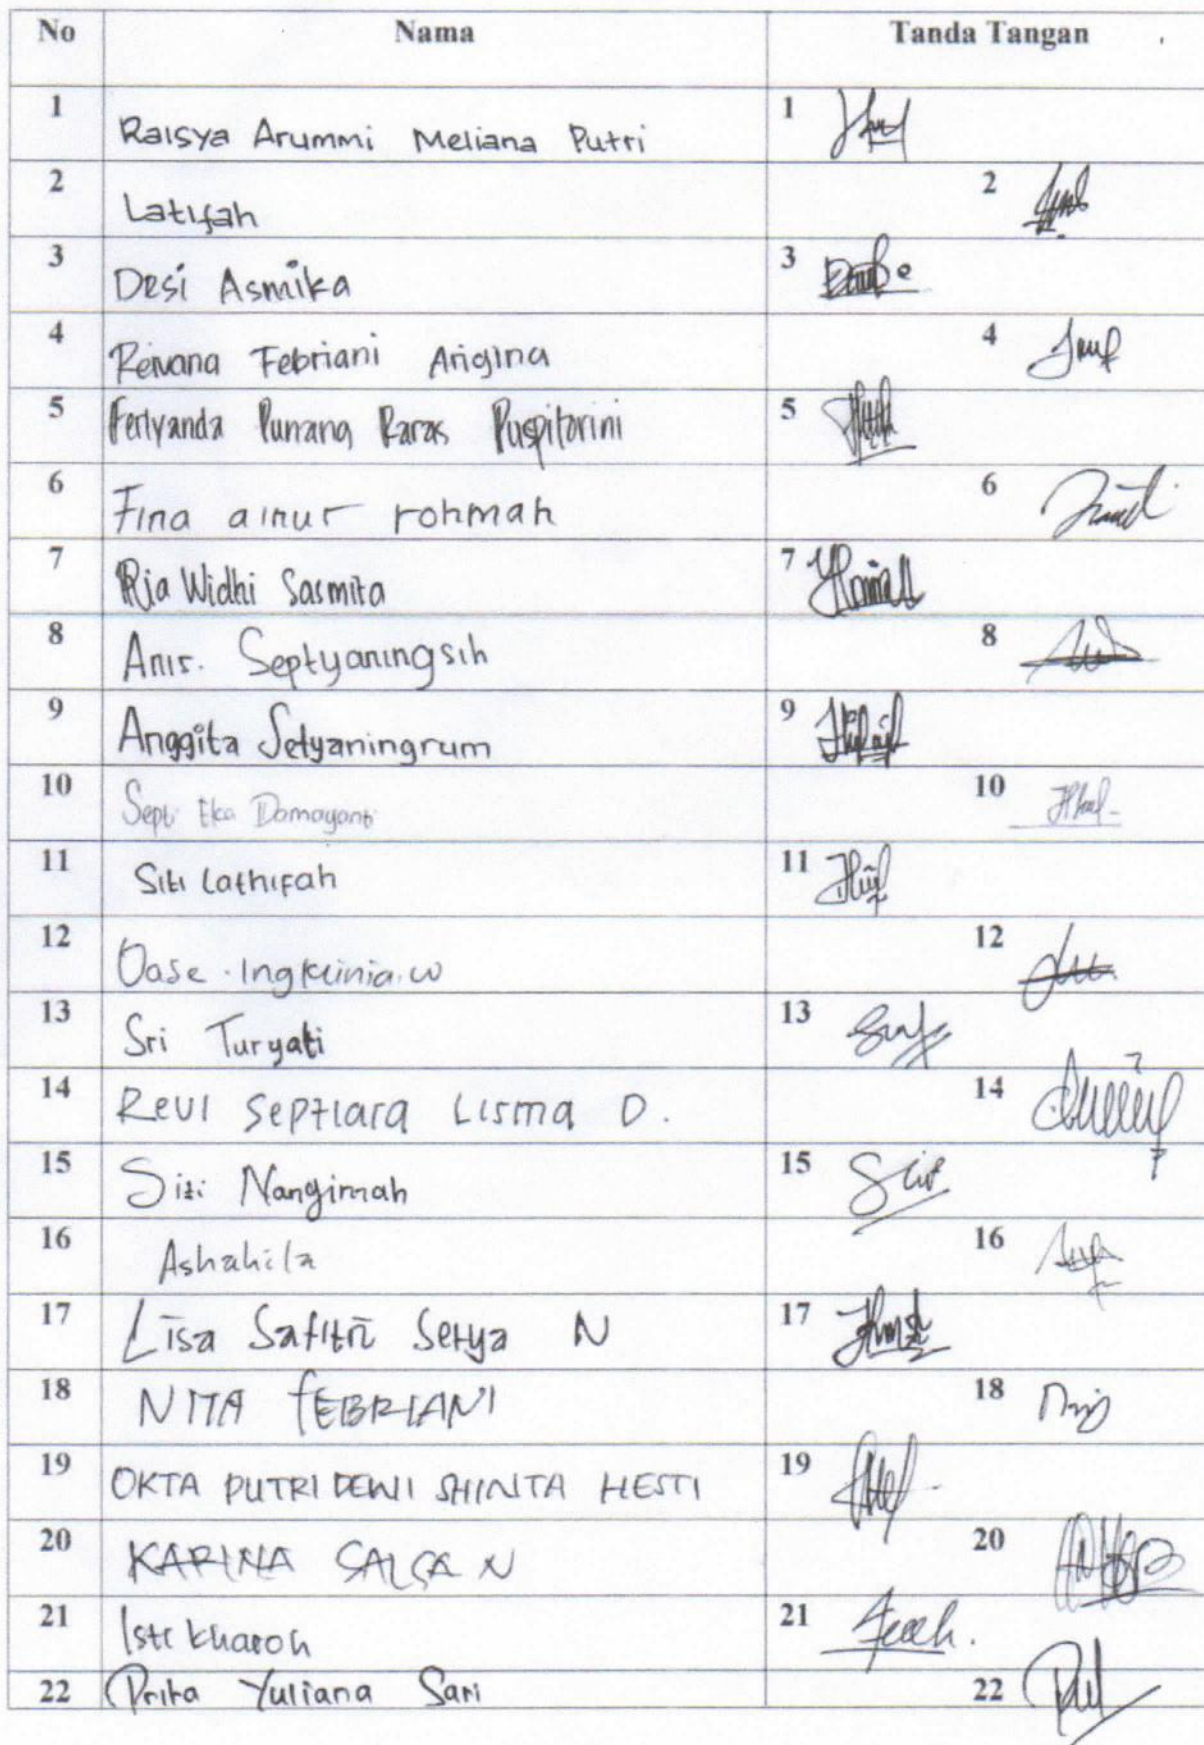 No Nama Tanda Tangan
1 Raisya Arummi Meliana Putri 1
2 Latifah 2
3 Desi Asmika 3
4 Reivana Febriani Arigina 4
5 Ferlyanda Punang Raras Puspitorini 5
6 Fina ainur rohmah 6
7 Ria Widhi Sasmita 7
8 Anis. Septyaningsih 8
9 Anggita Setyaningrum 9
10 Septi Eka Damayanti 10
11 Siti Lathifah 11
12 Oase 12
13 Sri Turyati 13
14 Revi Septiara Lisma D. 14
15 Siti Nangimah 15
16 Ashahila 16
17 Lisa Safitri Setya N 17
18 NITA FEBRIANI 18
19 OKTA PUTRI DEWI SHINTA HESTI 19
20 KARINA SALSA N 20
21 Isti kharoh 21
22 Prita Yuliana Sari 22